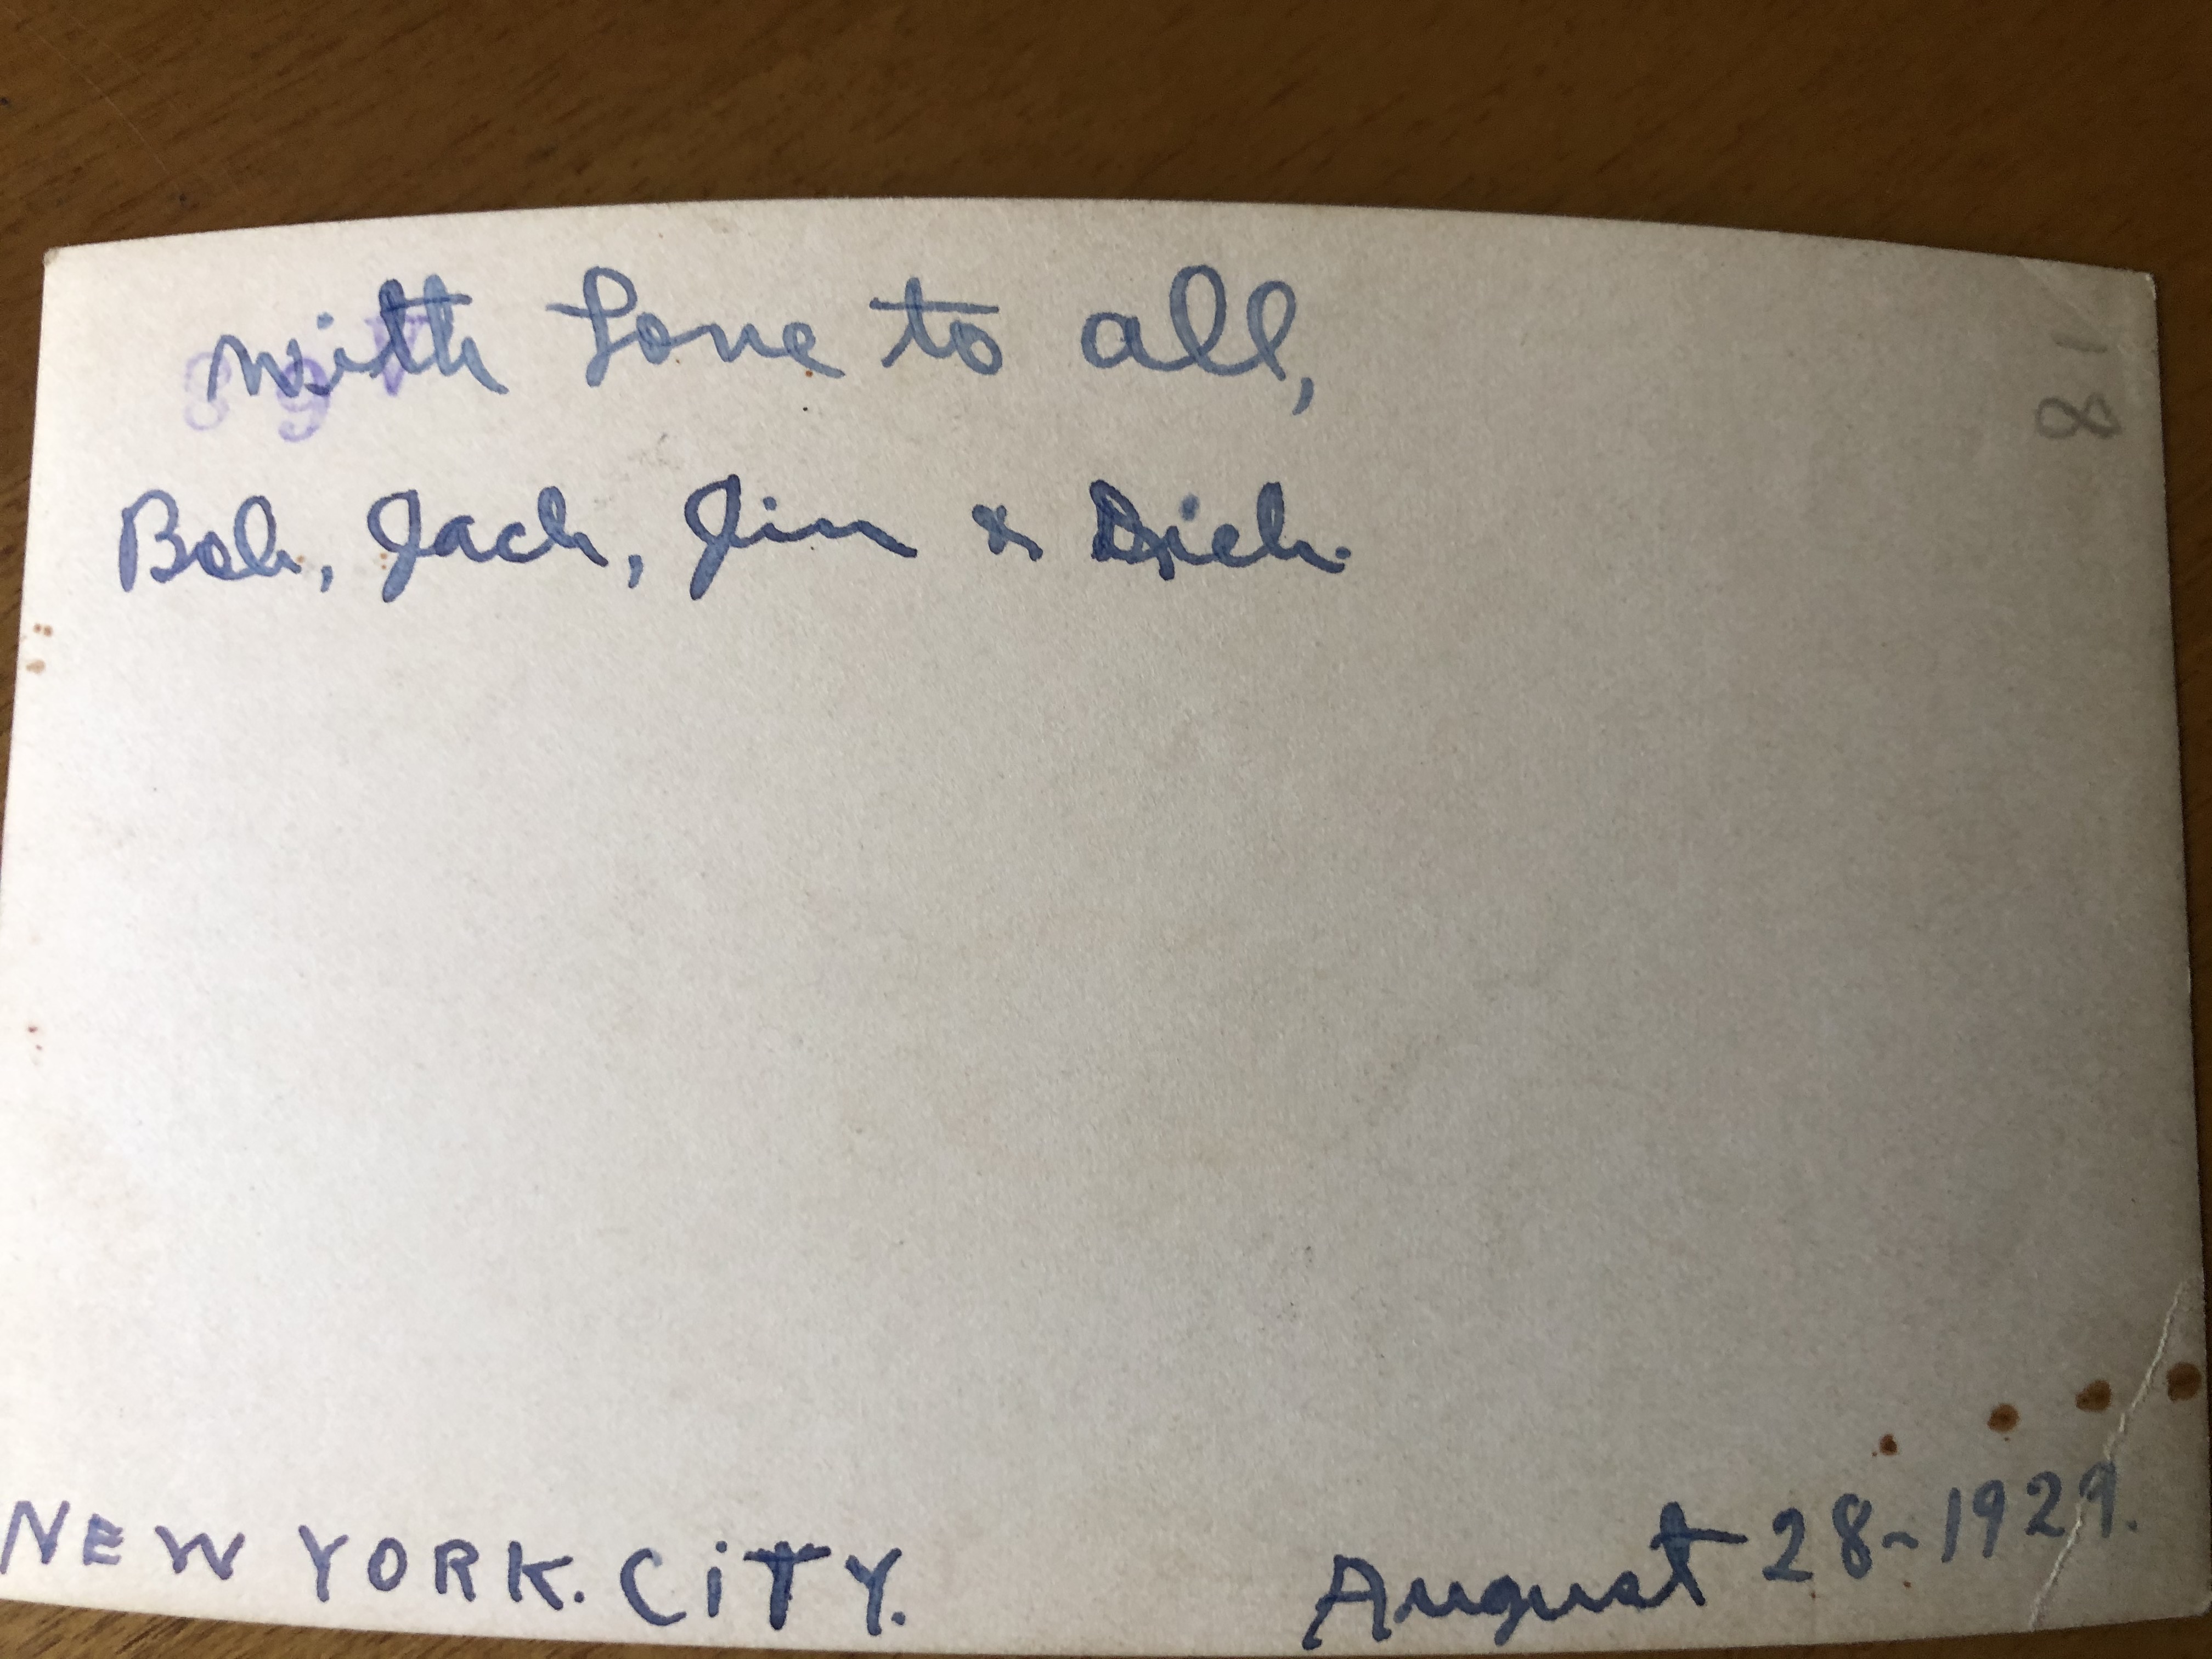 with Love to all,
Bob, Jack, Jim & Dick.
18
NEW YORK. CiTY.
August 28-1929.